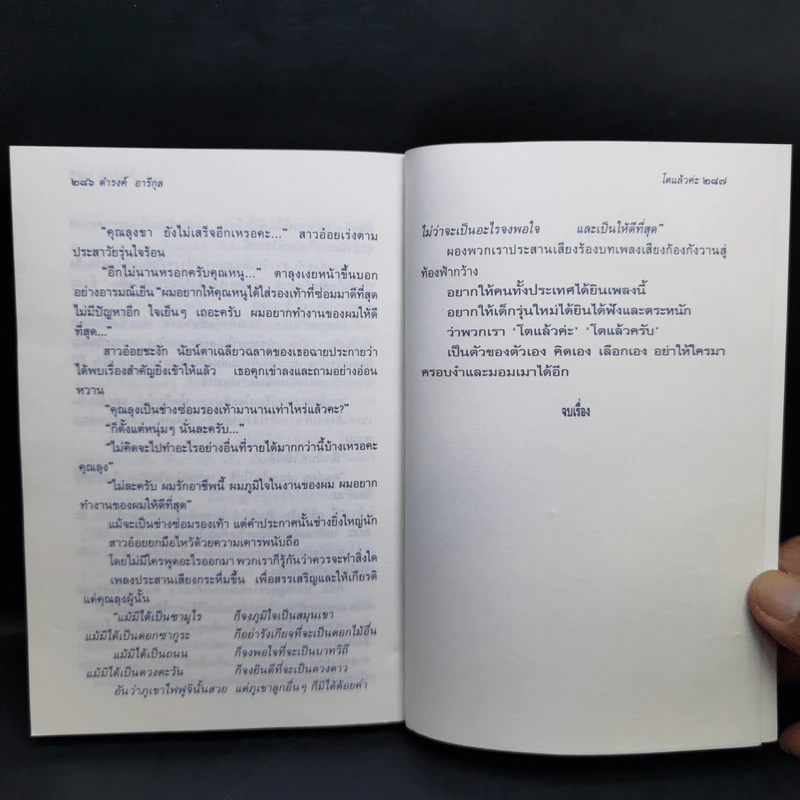 ๒๘๖ ดำรงค์ อารีกุล
"คุณลุงขา ยังไม่เสร็จอีกเหรอคะ..." สาวอ๋อยเร่งตาม
ประสาวัยรุ่นใจร้อน
"อีกไม่นานหรอกครับคุณหนู..." ตาลุงเงยหน้าขึ้นบอก
อย่างอารมณ์เย็น "ผมอยากให้คุณหนูได้ใส่รองเท้าที่ซ่อมมาดีที่สุด
ไม่มีปัญหาอีก ใจเย็นๆ เถอะครับ ผมอยากทำงานของผมให้ดี
ที่สุด..."
สาวอ๋อยชะงัก นัยน์ตาเฉลียวฉลาดของเธอฉายประกายว่า
ได้พบเรื่องสำคัญยิ่งเข้าให้แล้ว เธอคุกเข่าลงและถามอย่างอ่อน
หวาน
"คุณลุงเป็นช่างซ่อมรองเท้ามานานเท่าไหร่แล้วคะ?"
"ก็ตั้งแต่หนุ่มๆ นั่นละครับ..."
"ไม่คิดจะไปทำอะไรอย่างอื่นที่รายได้มากกว่านี้บ้างเหรอคะ
คุณลุง"
"ไม่ละครับ ผมรักอาชีพนี้ ผมภูมิใจในงานของผม ผมอยาก
ทำงานของผมให้ดีที่สุด"
แม้จะเป็นช่างซ่อมรองเท้า แต่คำประกาศนั้นช่างยิ่งใหญ่นัก
สาวอ๋อยยกมือไหว้ด้วยความเคารพนับถือ
โดยไม่มีใครพูดอะไรออกมา พวกเราก็รู้กันว่าควรจะทำสิ่งใด
เพลงประสานเสียงกระหึ่มขึ้น เพื่อสรรเสริญและให้เกียรติ
แด่คุณลุงผู้นั้น
"แม้มิได้เป็นซามูไร ก็จงภูมิใจเป็นสมุนเขา
แม้มิได้เป็นดอกซากูระ ก็อย่ารังเกียจที่จะเป็นดอกไม้อื่น
แม้มิได้เป็นถนน ก็จงพอใจที่จะเป็นบาทวิถี
แม้มิได้เป็นดวงตะวัน ก็จงยินดีที่จะเป็นดวงดาว
อันว่าภูเขาไฟฟูจินั้นสวย แต่ภูเขาลูกอื่นๆ ก็มิได้ด้อยค่า
โตแล้วค่ะ ๒๘๗
ไม่ว่าจะเป็นอะไรจงพอใจ และเป็นให้ดีที่สุด"
ผองพวกเราประสานเสียงร้องบทเพลงเสียงก้องกังวานสู่
ท้องฟ้ากว้าง
อยากให้คนทั้งประเทศได้ยินเพลงนี้
อยากให้เด็กรุ่นใหม่ได้ยินได้ฟังและตระหนัก
ว่าพวกเรา 'โตแล้วค่ะ' 'โตแล้วครับ'
เป็นตัวของตัวเอง คิดเอง เลือกเอง อย่าให้ใครมา
ครอบงำและมอมเมาได้อีก
จบเรื่อง